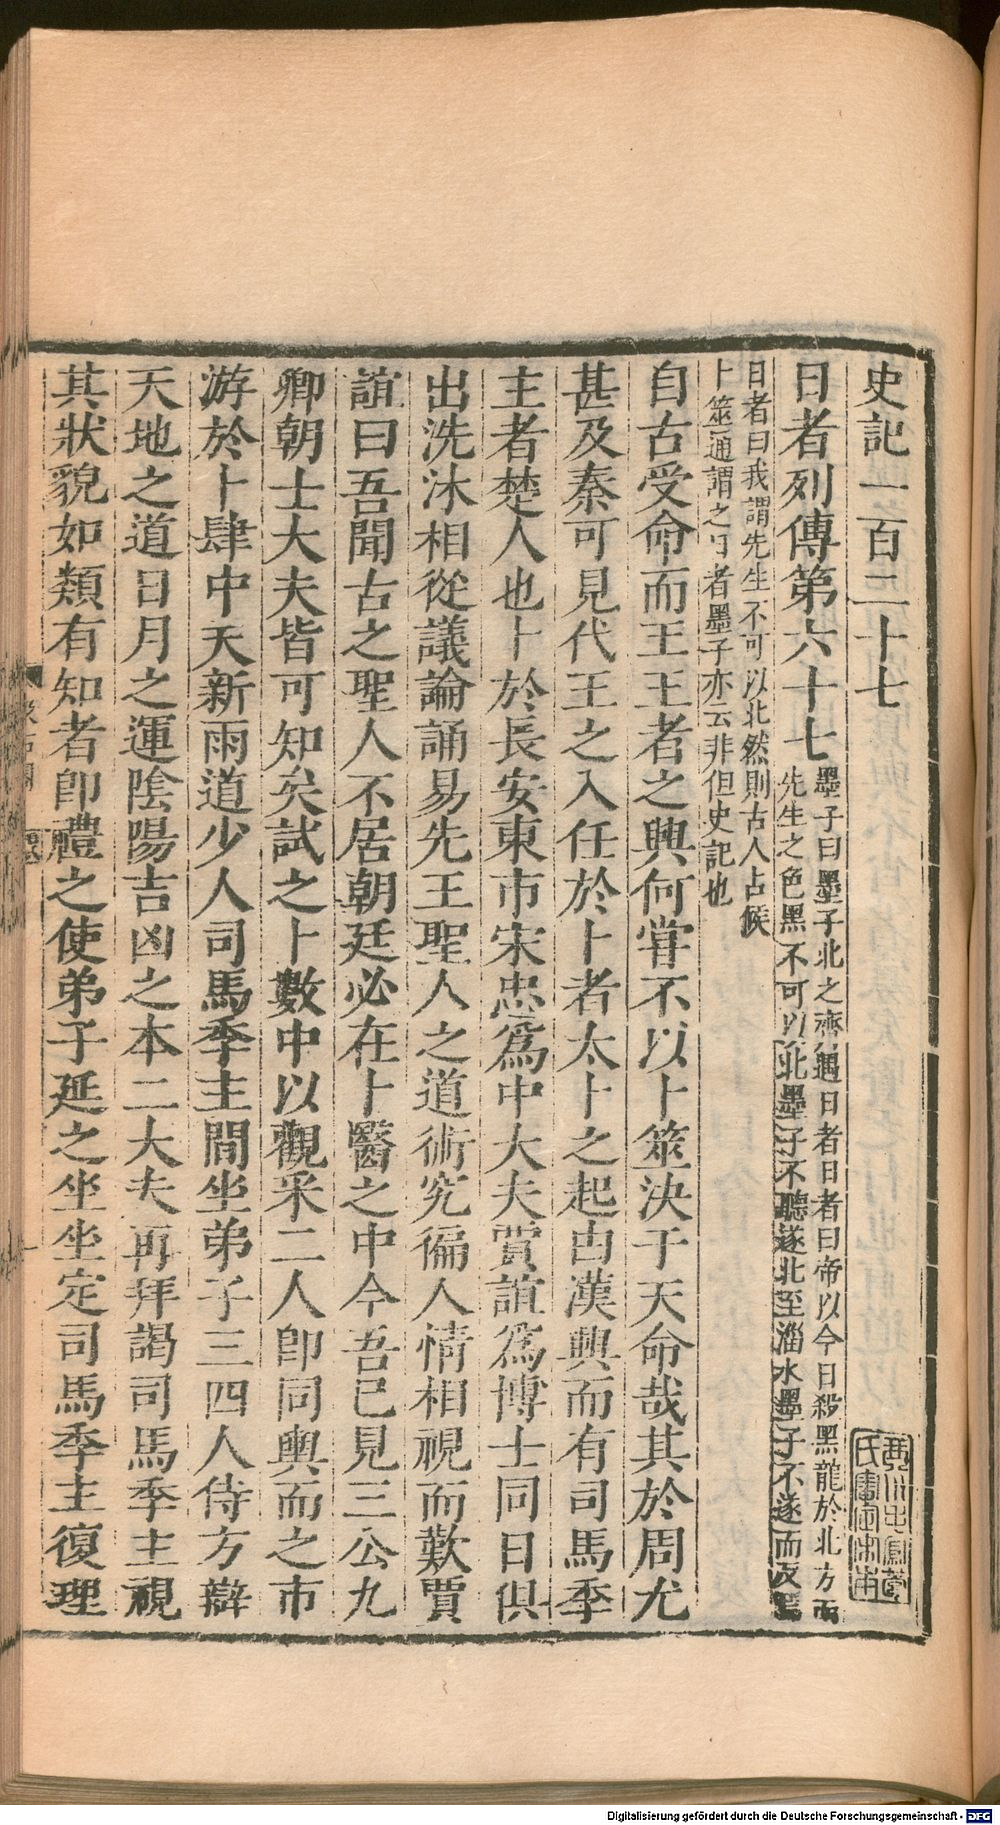 史記一百二十七
日者列傳第六十七
墨子曰墨子北之齊遇日者日者曰帝以今日殺黑龍於北方而
先生之色黑不可以北墨子不聽遂北至淄水墨子不遂而反焉
日者曰我謂先生不可以北然則古人占候
卜筮通謂之日者墨子亦云非但史記也
自古受命而王王者之興何嘗不以卜筮決于天命哉其於周尤
甚及秦可見代王之入任於卜者太卜之起由漢興而有司馬季
主者楚人也卜於長安東市宋忠爲中大夫賈誼爲博士同日俱
出洗沐相從議論誦易先王聖人之道術究徧人情相視而歎賈
誼曰吾聞古之聖人不居朝廷必在卜醫之中今吾已見三公九
卿朝士大夫皆可知矣試之卜數中以觀采二人卽同輿而之市
游於卜肆中天新雨道少人司馬季主閒坐弟子三四人侍方辯
天地之道日月之運陰陽吉凶之本二大夫再拜謁司馬季主視
其狀貌如類有知者卽禮之使弟子延之坐坐定司馬季主復理
Digitalisierung gefördert durch die Deutsche Forschungsgemeinschaft - DFG